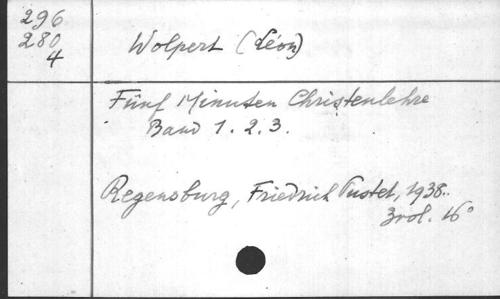 296
280
4
Wolpert (Léon)
Fünf Minuten Christenlehre
Band 1. 2. 3.
Regensburg, Friedrich Pustet, 1938.
3 vol. 16°